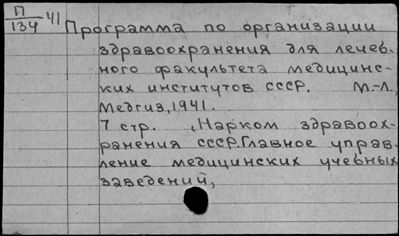 П
134 41
Программа по организации
здравоохранения для лечеб-
ного факультета медицинс-
ких институтов СССР. М.-Л.,
Медгиз, 1941.
7 стр. , Нарком здравоох-
ранения СССР. Главное управ-
ление медицинских учебных
заведений,